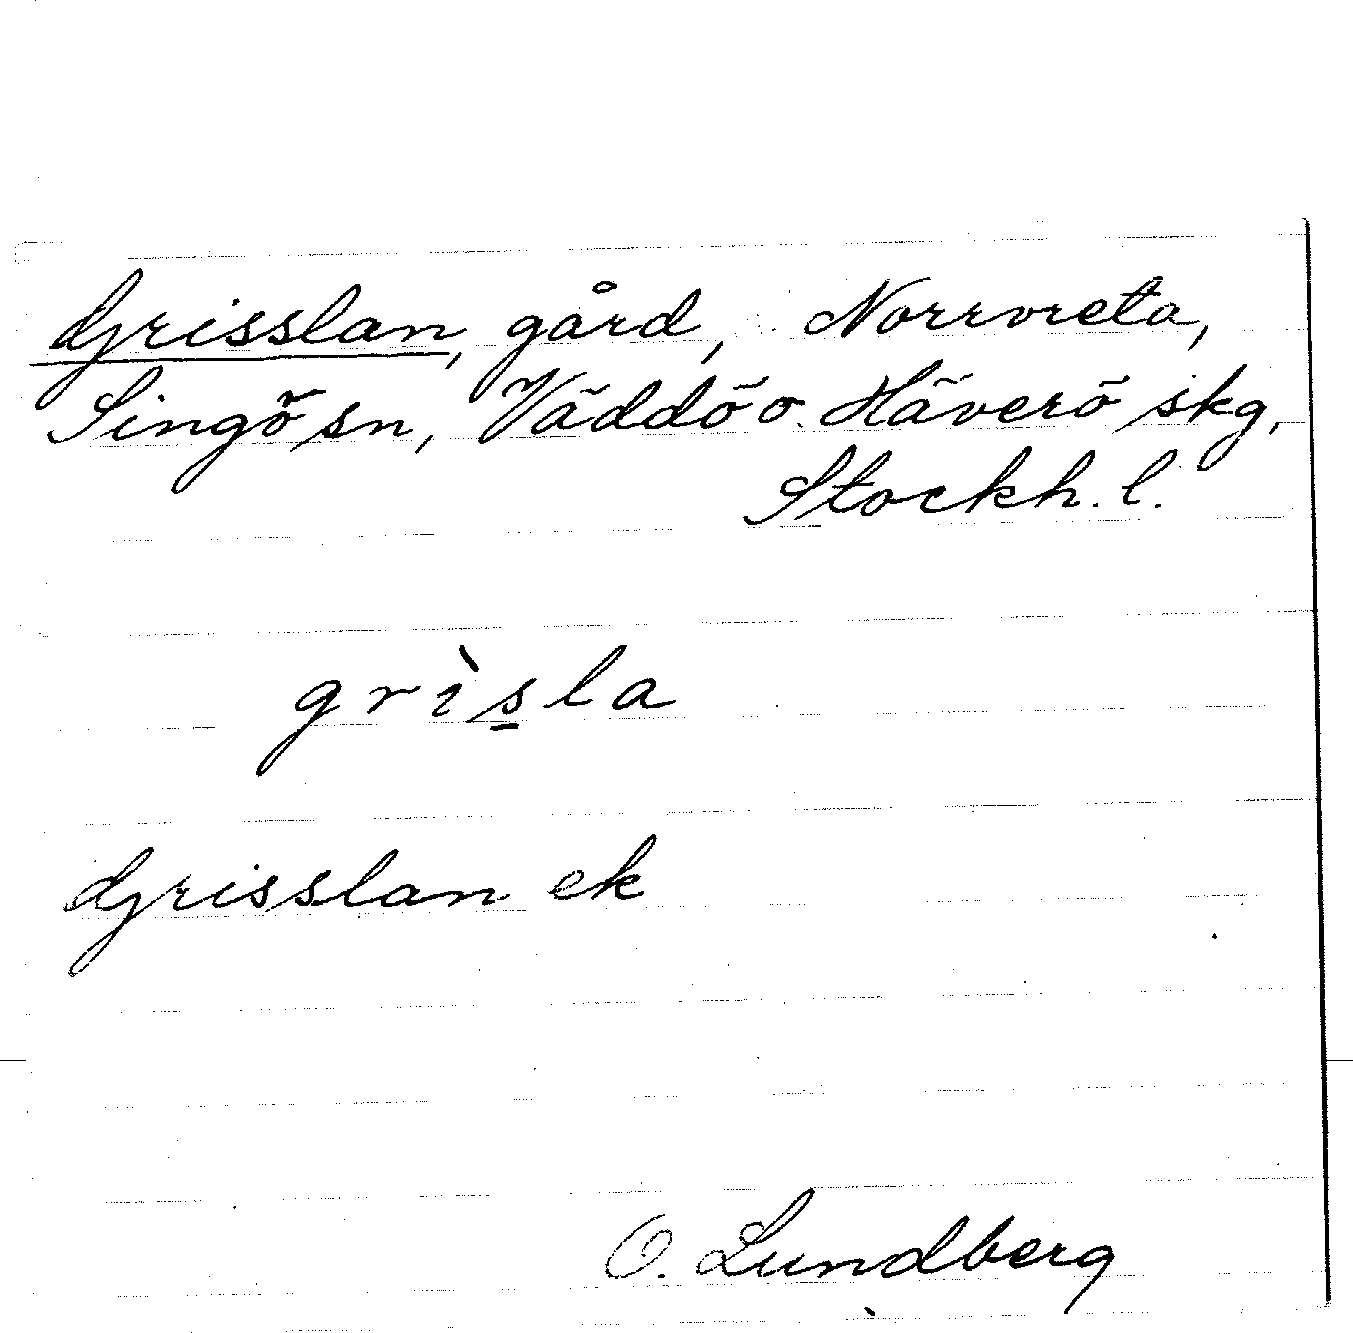 Grisslan, gård, Norrvreta,
Singö sn, Väddö o. Häverö skg,
Stockh. l.
grìs̲la
Grisslan ek
O. Lundberg